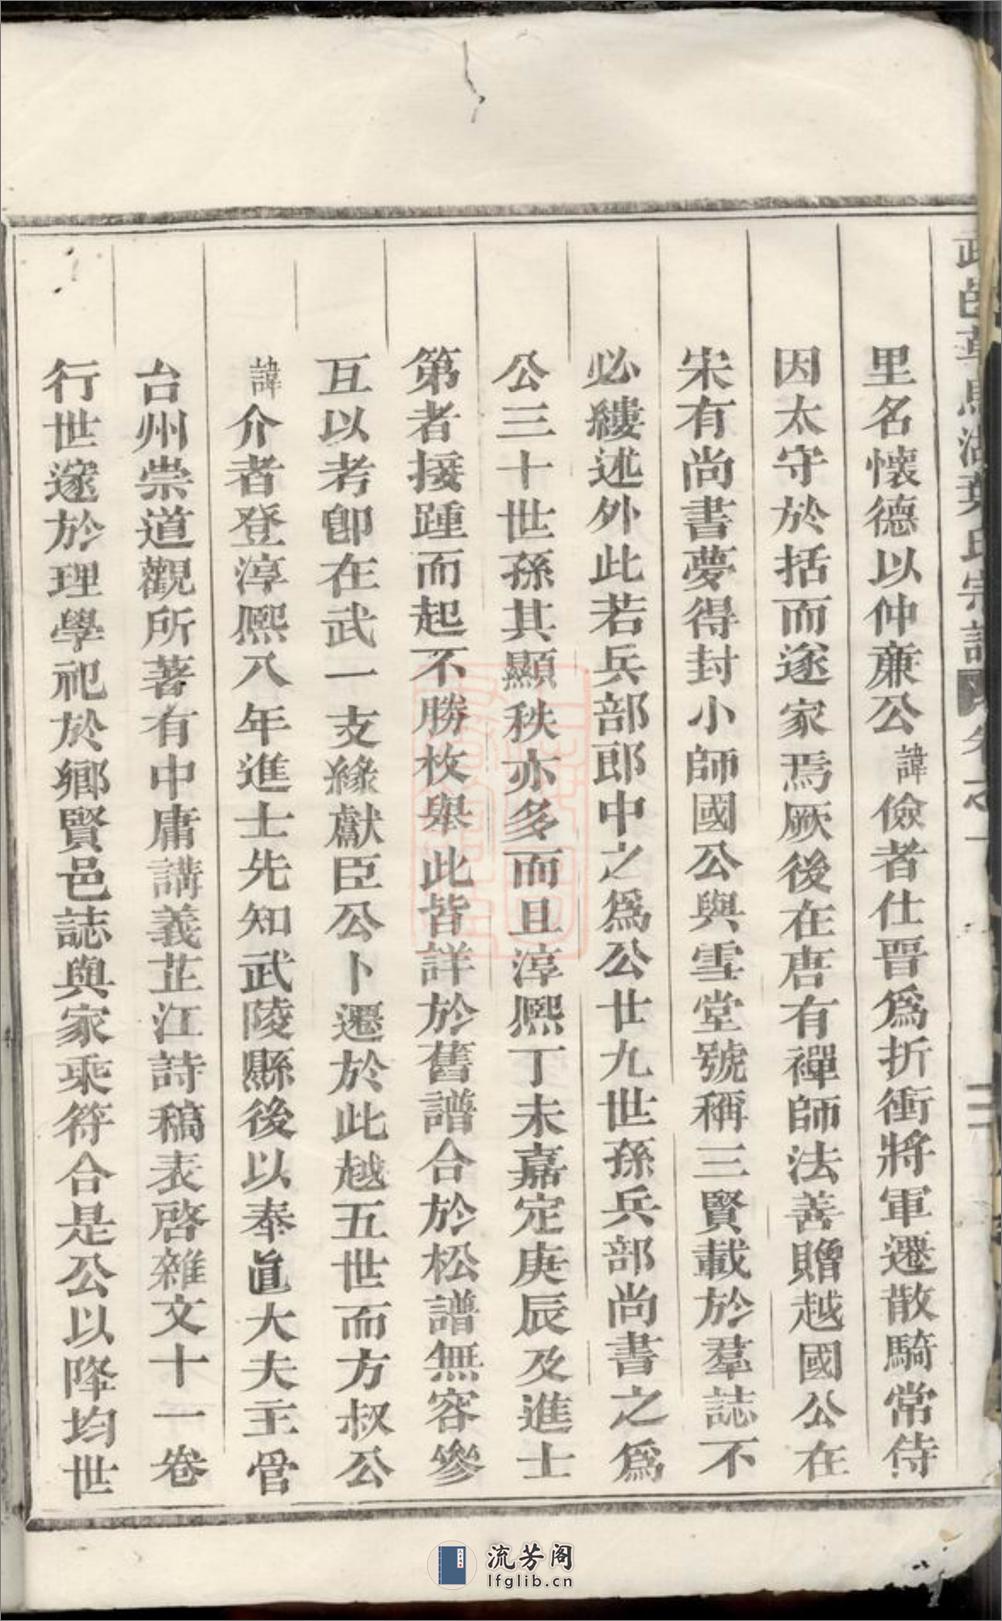 里名懷德以仲亷公諱儉者仕晋爲折衝將軍遷散騎常侍
因太守於括而遂家焉厥後在唐有禪師法善贈越國公在
宋有尚書夢得封小師國公與雪堂號稱三賢載於羣誌不
必縷述外此若兵部郎中之爲公廿九世孫兵部尚書之爲
公三十世孫其顯秩亦多而且淳熈丁未嘉定庚辰及進士
第者接踵而起不勝枚舉此皆詳於舊譜合於松譜無容參
互以考卽在武一支緣獻臣公卜遷於此越五世而方叔公
諱介者登淳熈八年進士先知武陵縣後以奉眞大夫主管
台州崇道觀所著有中庸講義芷江詩稿表啓雜文十一卷
行世邃於理學祀於鄉賢邑誌與家乘符合是公以降均世
流芳阁
lfglib.cn